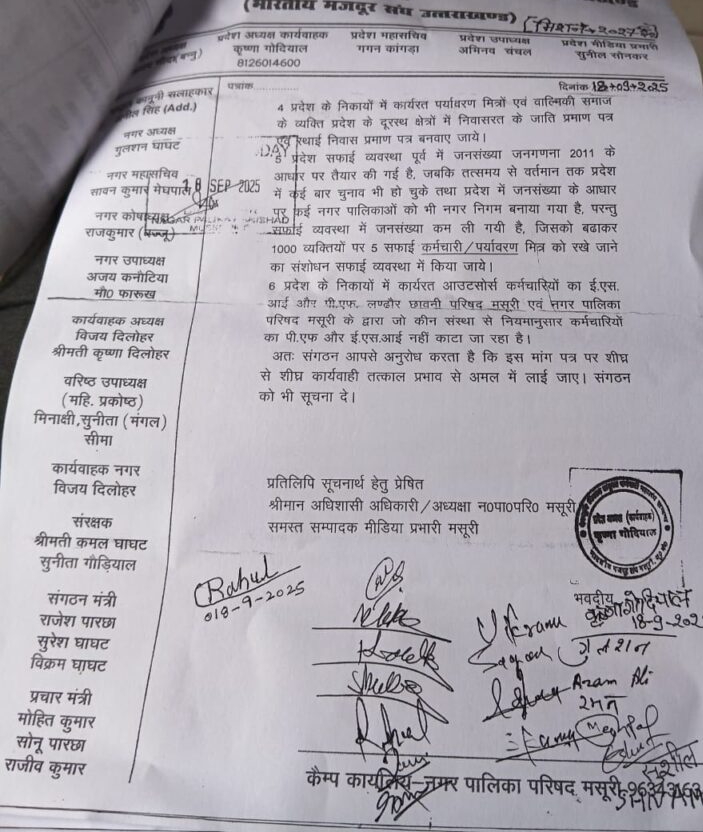 (भारतीय मजदूर संघ उत्तराखण्ड)
(मिशन-2027
प्रदेश अध्यक्ष कार्यवाहक
कृष्णा गोदियाल
8126014600
प्रदेश महासचिव
गगन कांगड़ा
प्रदेश उपाध्यक्ष
अभिनव चंचल
प्रदेश मीडिया प्रभारी
सुनील सोनकर
पत्रांक
दिनांक 18+09+2025
कानूनी सलाहकार
सिंह (Add.)
नगर अध्यक्ष
गुलशन घाघट
नगर महासचिव
सावन कुमार मेघपाल
नगर कोषाध्यक्ष
राजकुमार (बज्जू)
नगर उपाध्यक्ष
अजय कनौटिया
मौ0 फारूख
कार्यवाहक अध्यक्ष
विजय दिलोहर
श्रीमती कृष्णा दिलोहर
वरिष्ठ उपाध्यक्ष
(महि. प्रकोष्ठ)
मिनाक्षी,सुनीता (मंगल)
सीमा
कार्यवाहक नगर
विजय दिलोहर
संरक्षक
श्रीमती कमल घाघट
सुनीता गौड़ियाल
संगठन मंत्री
राजेश पारछा
सुरेश घाघट
विक्रम घाघट
प्रचार मंत्री
मोहित कुमार
सोनू पारछा
राजीव कुमार
4 प्रदेश के निकायों में कार्यरत पर्यावरण मित्रों एवं वाल्मिकी समाज
के व्यक्ति प्रदेश के दूरस्थ क्षेत्रों में निवासरत के जाति प्रमाण पत्र
एवं स्थाई निवास प्रमाण पत्र बनवाए जाये।
5 प्रदेश सफाई व्यवस्था पूर्व में जनसंख्या जनगणना 2011 के
आधार पर तैयार की गई है, जबकि तत्समय से वर्तमान तक प्रदेश
में कई बार चुनाव भी हो चुके तथा प्रदेश में जनसंख्या के आधार
पर कई नगर पालिकाओं को भी नगर निगम बनाया गया है, परन्तु
सफाई व्यवस्था में जनसंख्या कम ली गयी है, जिसको बढाकर
1000 व्यक्तियों पर 5 सफाई कर्मचारी/पर्यावरण मित्र को रखे जाने
का संशोधन सफाई व्यवस्था में किया जाये।
6 प्रदेश के निकायों में कार्यरत आउटसोर्स कर्मचारियों का ई.एस.
आई और पी.एफ. लण्ढौर छावनी परिषद मसूरी एवं नगर पालिका
परिषद मसूरी के द्वारा जो कीन संस्था से नियमानुसार कर्मचारियों
का पी.एफ और ई.एस.आई नहीं काटा जा रहा है।
अतः संगठन आपसे अनुरोध करता है कि इस मांग पत्र पर शीघ्र
से शीघ्र कार्यवाही तत्काल प्रभाव से अमल में लाई जाए। संगठन
को भी सूचना दे।
DAY
18 SEP 2025
NAGAR PALIKA PARISHAD
प्रतिलिपि सूचनार्थ हेतु प्रेषित
श्रीमान अधिशासी अधिकारी/अध्यक्षा न0पा0परि0 मसूरी
समस्त सम्पादक मीडिया प्रभारी मसूरी
प्रदेश अध्यक्ष (कार्यवाहक)
कृष्णा गोदियाल
भवदीय
कृष्णा गोदियाल
18-9-202
Rahul
018-9-2025
गुलशन
Azam Ali
रमन
Meghpal
सुशील
कैम्प कार्यालय-नगर पालिका परिषद मसूरी-